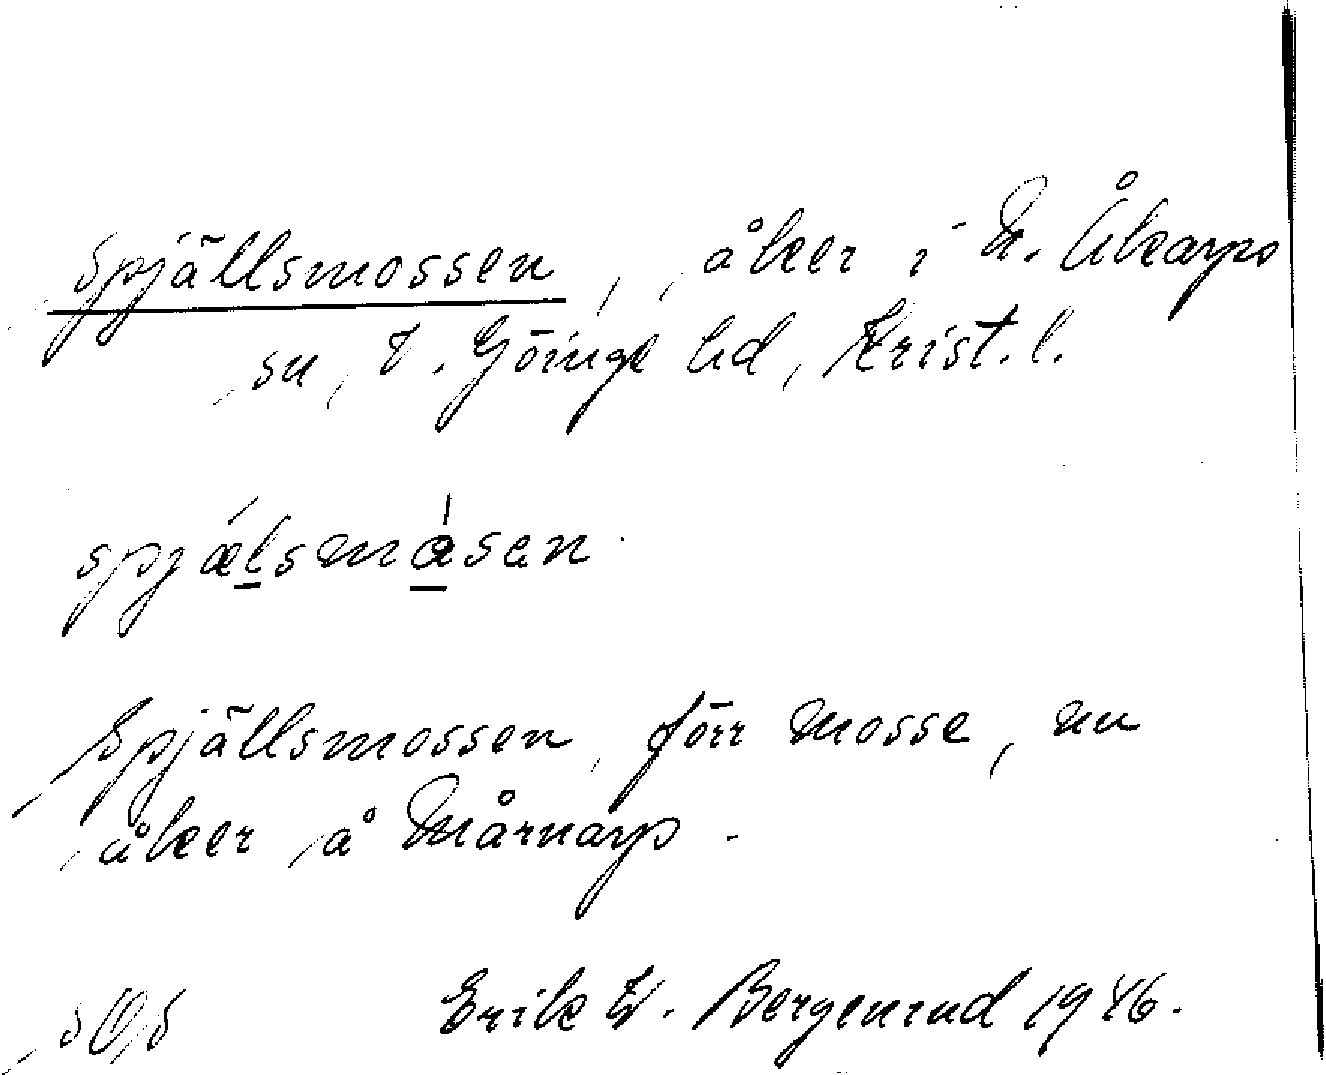 Spjällsmossen, åker i N. Åkarps
sn, V. Göinge hd, Krist. l.
spjælsmåsen
Spjällsmossen, förr mosse, nu
åker å Mårnarp.
Erik W. Bergenrud 1946.